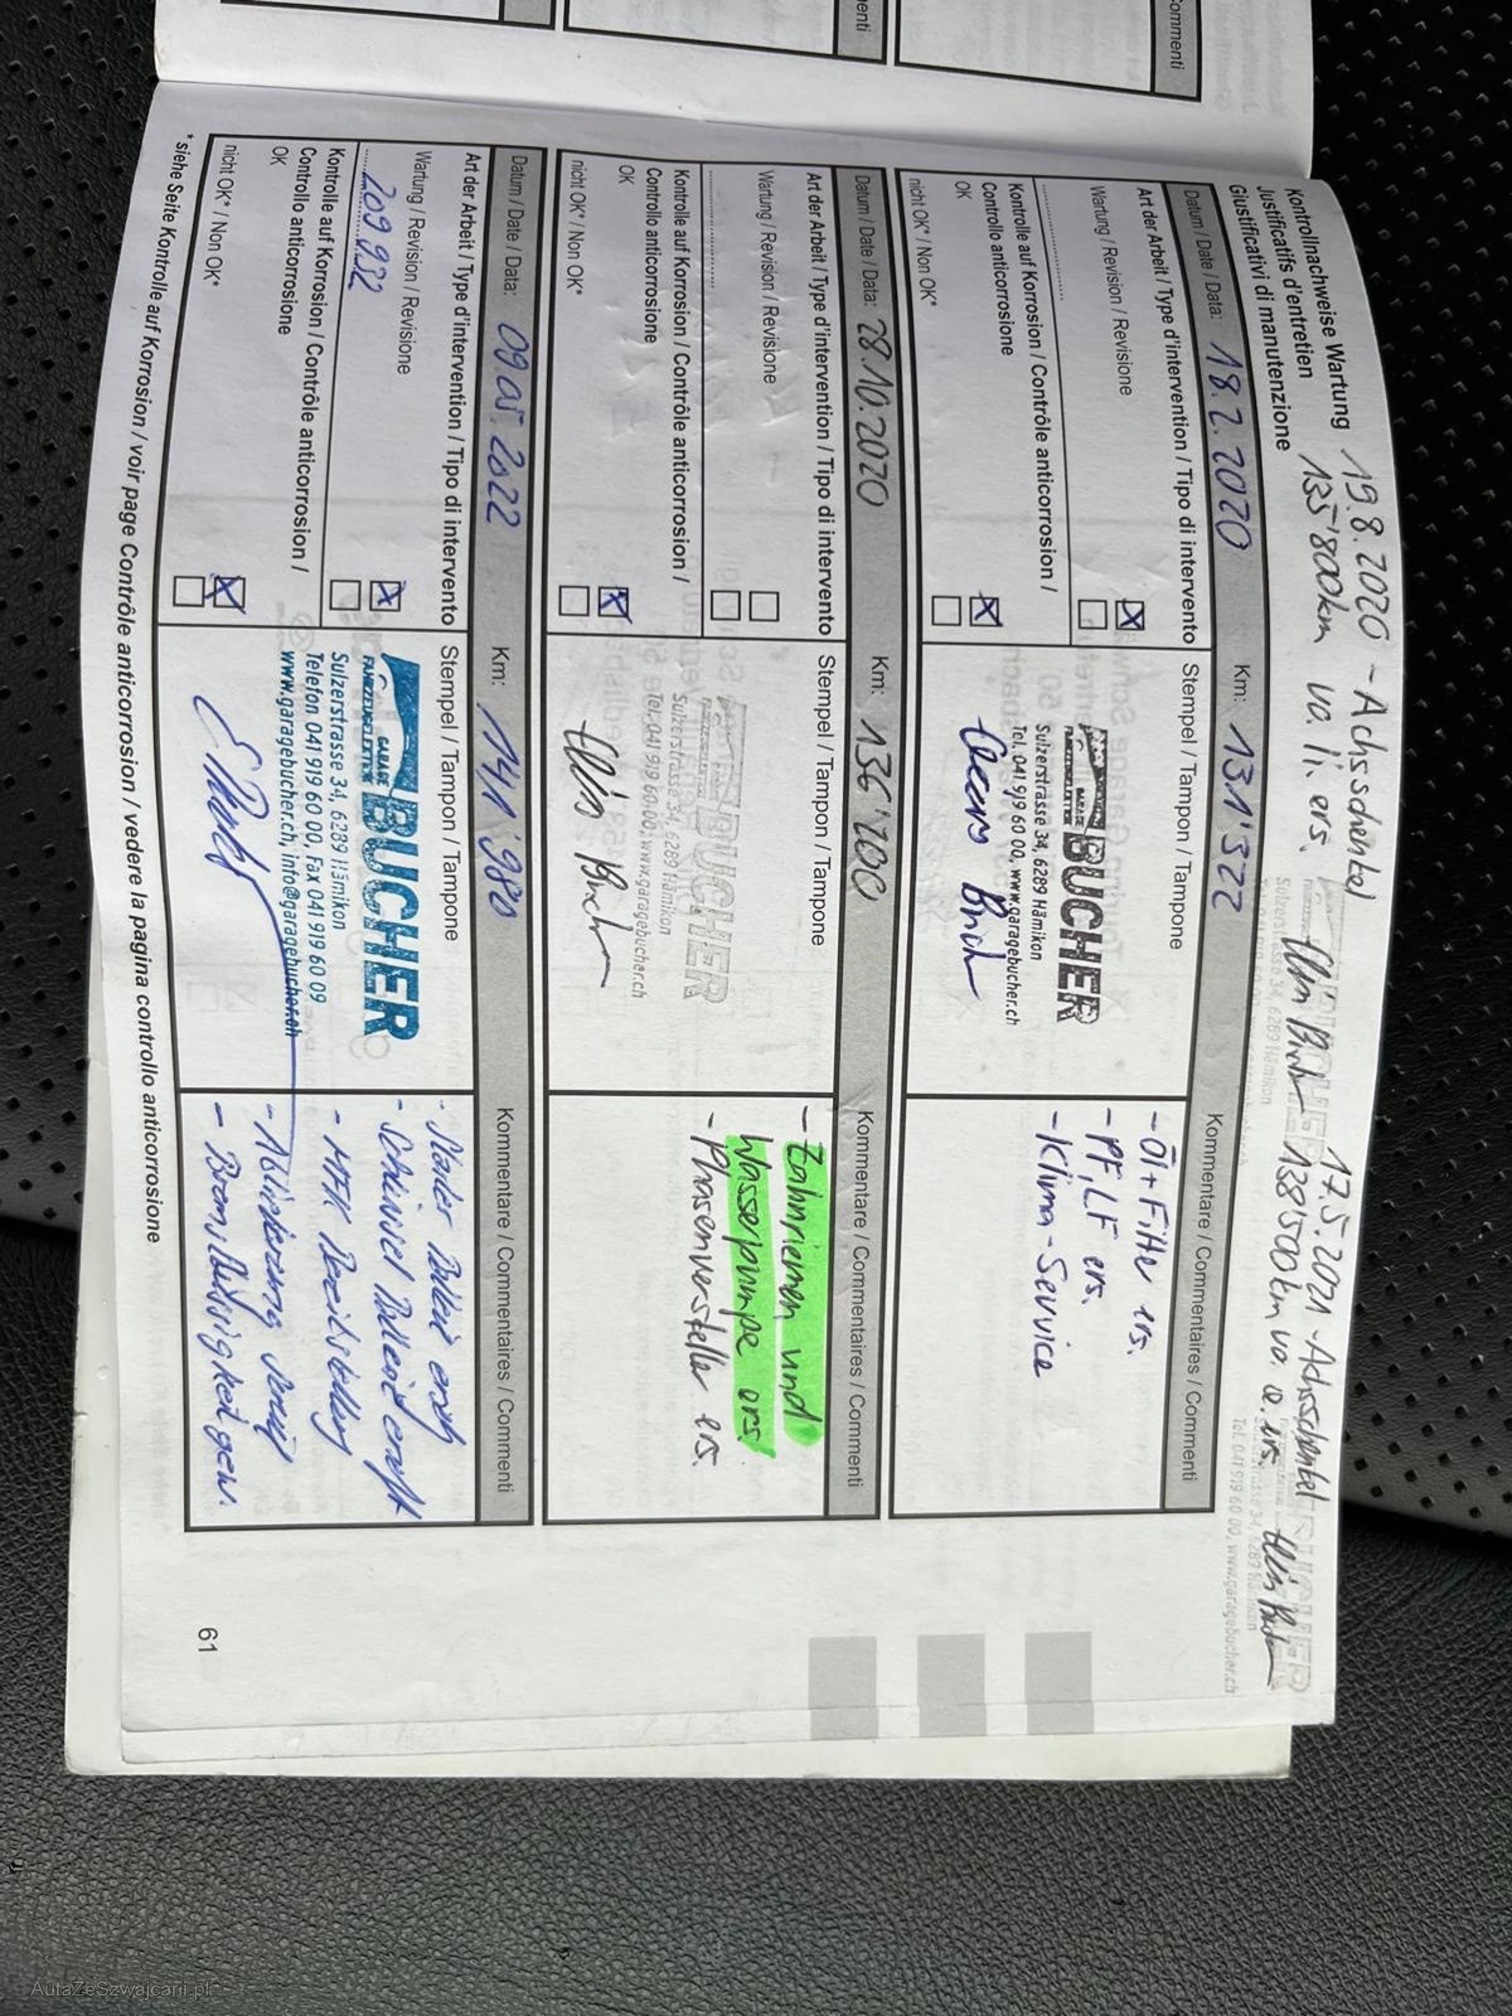 ommenti
enti
Kontrollnachweise Wartung
Justificatifs d'entretien
Giustificativi di manutenzione
19.8.2020 - Achsschenkel
135'800km vo. li. ers.
17.5.2021 - Achsschenkel
138'500km vo. re. ers.
Datum / Date / Data: 18.2.2020 Km: 131'522 Kommentare / Commentaires / Commenti
Art der Arbeit / Type d'intervention / Tipo di intervento
Wartung / Revision / Revisione
Kontrolle auf Korrosion / Contrôle anticorrosion /
Controllo anticorrosione
OK
nicht OK* / Non OK*
Stempel / Tampon / Tampone
GARAGE BUCHER
Sulzerstrasse 34, 6289 Hämikon
Tel. 041 919 60 00, www.garagebucher.ch
- Öl + Filter ers.
- PF, LF ers.
- Klima-Service
Datum / Date / Data: 28.10.2020 Km: 136'200 Kommentare / Commentaires / Commenti
Art der Arbeit / Type d'intervention / Tipo di intervento
Wartung / Revision / Revisione
Kontrolle auf Korrosion / Contrôle anticorrosion /
Controllo anticorrosione
OK
nicht OK* / Non OK*
Stempel / Tampon / Tampone
BUCHER
Sulzerstrasse 34, 6289 Hämikon
Tel. 041 919 60 00, www.garagebucher.ch
- Zahnriemen und
Wasserpumpe ers.
- Phasenversteller ers.
Datum / Date / Data: 09.05.2022 Km: 141'980 Kommentare / Commentaires / Commenti
Art der Arbeit / Type d'intervention / Tipo di intervento
Wartung / Revision / Revisione
209 932
Kontrolle auf Korrosion / Contrôle anticorrosion /
Controllo anticorrosione
OK
nicht OK* / Non OK*
Stempel / Tampon / Tampone
GARAGE BUCHER
FAHRZEUGELEKTRIK
Sulzerstrasse 34, 6289 Hämikon
Telefon 041 919 60 00, Fax 041 919 60 09
www.garagebucher.ch, info@garagebucher.ch
- MFK Bereitstellung
- Bremsflüssigkeit gew.
*siehe Seite Kontrolle auf Korrosion / voir page Contrôle anticorrosion / vedere la pagina controllo anticorrosione
61
AutaZeSzwajcarii.pl